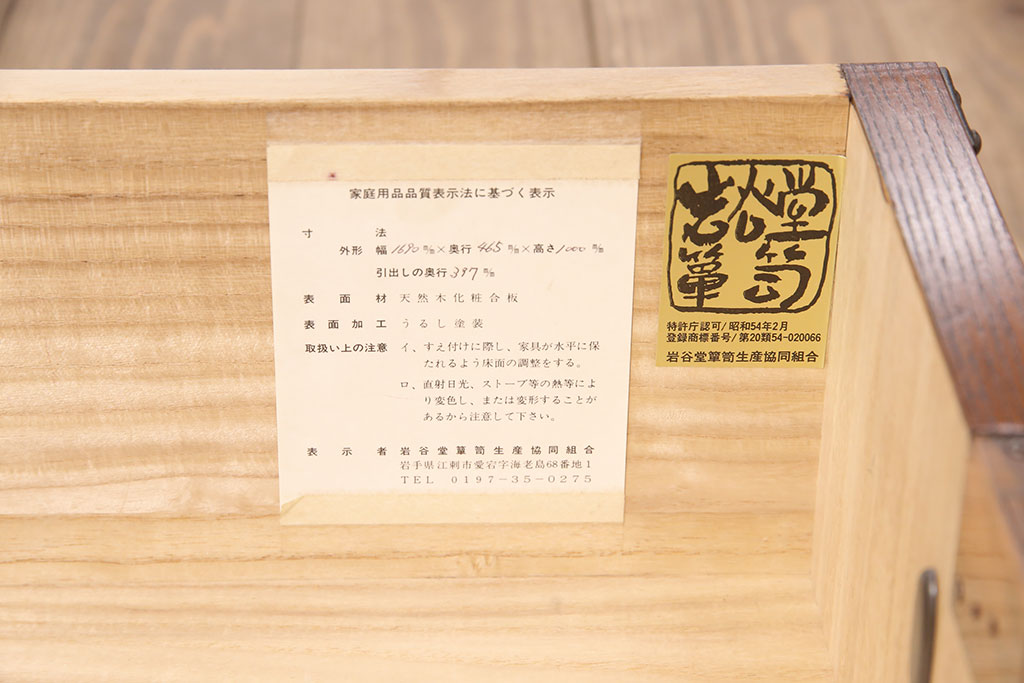 家庭用品品質表示法に基づく表示
寸法
外形 幅 1690 m/m × 奥行 465 m/m × 高さ 1000 m/m
引出しの奥行 397 m/m
表面材 天然木化粧合板
表面加工 うるし塗装
取扱い上の注意 イ、すえ付けに際し、家具が水平に保
たれるよう床面の調整をする。
ロ、直射日光、ストーブ等の熱等によ
り変色し、または変形することが
あるから注意して下さい。
表示者 岩谷堂簞笥生産協同組合
岩手県江刺市愛宕字海老島68番地1
TEL 0197-35-0275
岩谷堂
簞笥
特許庁認可/昭和54年2月
登録商標番号/第20類54-020066
岩谷堂簞笥生産協同組合